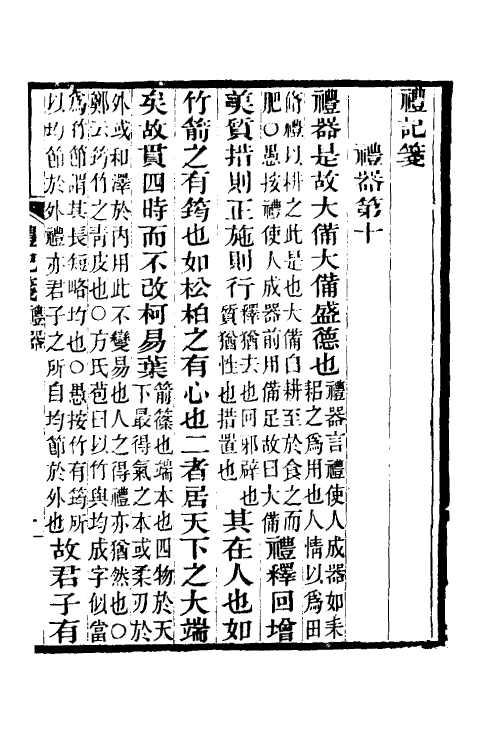 禮記箋
禮器第十
禮器是故大備大備盛德也禮器言禮使人成器如耒
耜之為用也人情以為田
脩禮以耕之此是也大備自耕至於食之而
肥〇愚按禮使人成器前用備足故曰大備禮釋回增
美質措則正施則行釋猶去也回邪辟也
質猶性也措置也其在人也如
竹箭之有筠也如松柏之有心也二者居天下之大端
矣故貫四時而不改柯易葉箭篠也端本也四物於天
下最得氣之本或柔刃於
外或和澤於內用此不變易也人之得禮亦猶然也〇
鄭云筠竹之青皮也〇方氏苞曰以竹與均成字似當
為竹節謂其長短略均也〇愚按竹有筠所
以均節於外禮亦君子之所自均節於外也故君子有
禮記箋禮器
一